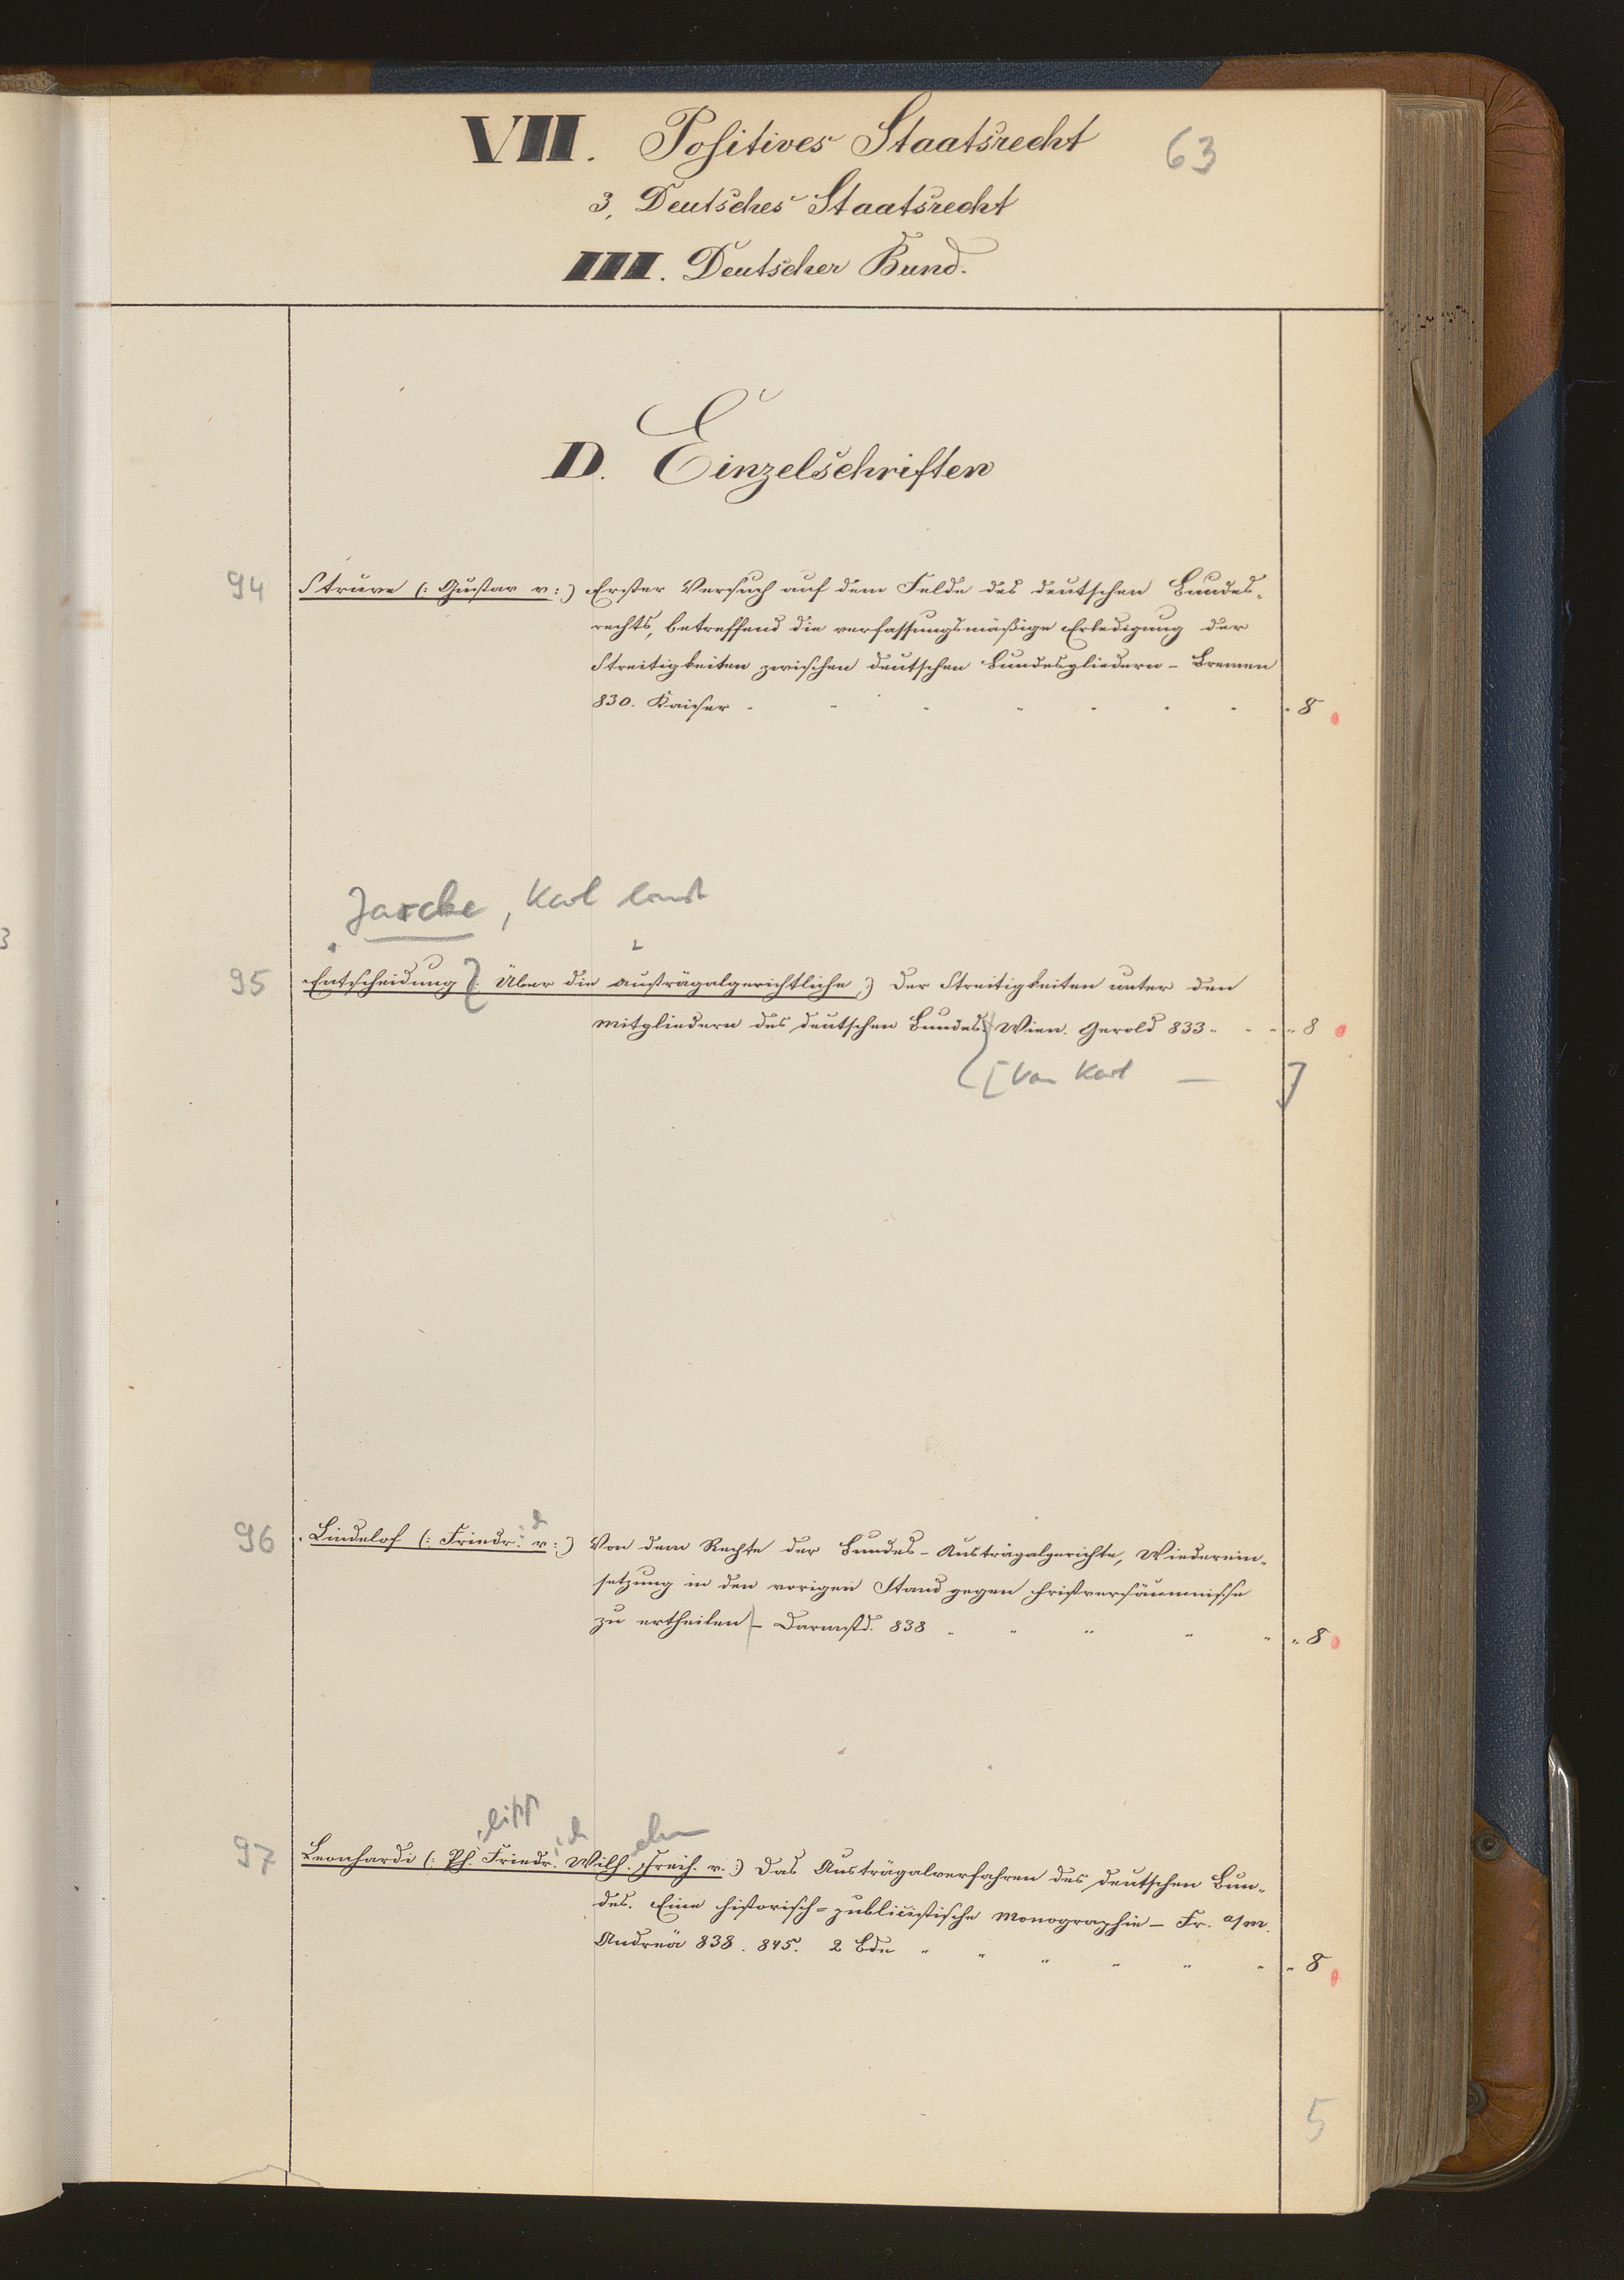 VII. Positives Staatsrecht 63
3, Deutsches Staatsrecht
III. Deutscher Bund.
D. Einzelschriften
94 Struve (: Gustav v :) Erster Versuch auf dem Felde des deutschen Bundes-
rechts, betreffend die verfassungsmäßige Erledigung der
Streitigkeiten zwischen deutschen Bundesgliedern - Bremen
830. Kaiser 8
Jarcke, Karl Ernst
95 Entscheidung (: Über die austrägalgerichtliche :) der Streitigkeiten unter den
Mitgliedern des deutschen Bundes. Wien. Gerold 833 8
[Von Karl — ]
96 Lindelof (: Friedr. v :) Von dem Rechte der Bundes-Austrägalgerichte, Wiederein-
setzung in den vorigen Stand gegen Fristversäumnisse
zu ertheilen - Darmstd. 838 8
lipp ch elm
97 Leonhardi (: Ph. Friedr. Wilh. Freih. v. :) Das Austrägalverfahren des deutschen Bun-
des. Eine historisch-publicistische Monographie - Fr. a/m.
Andreä 838. 845. 2 Bde 8
5